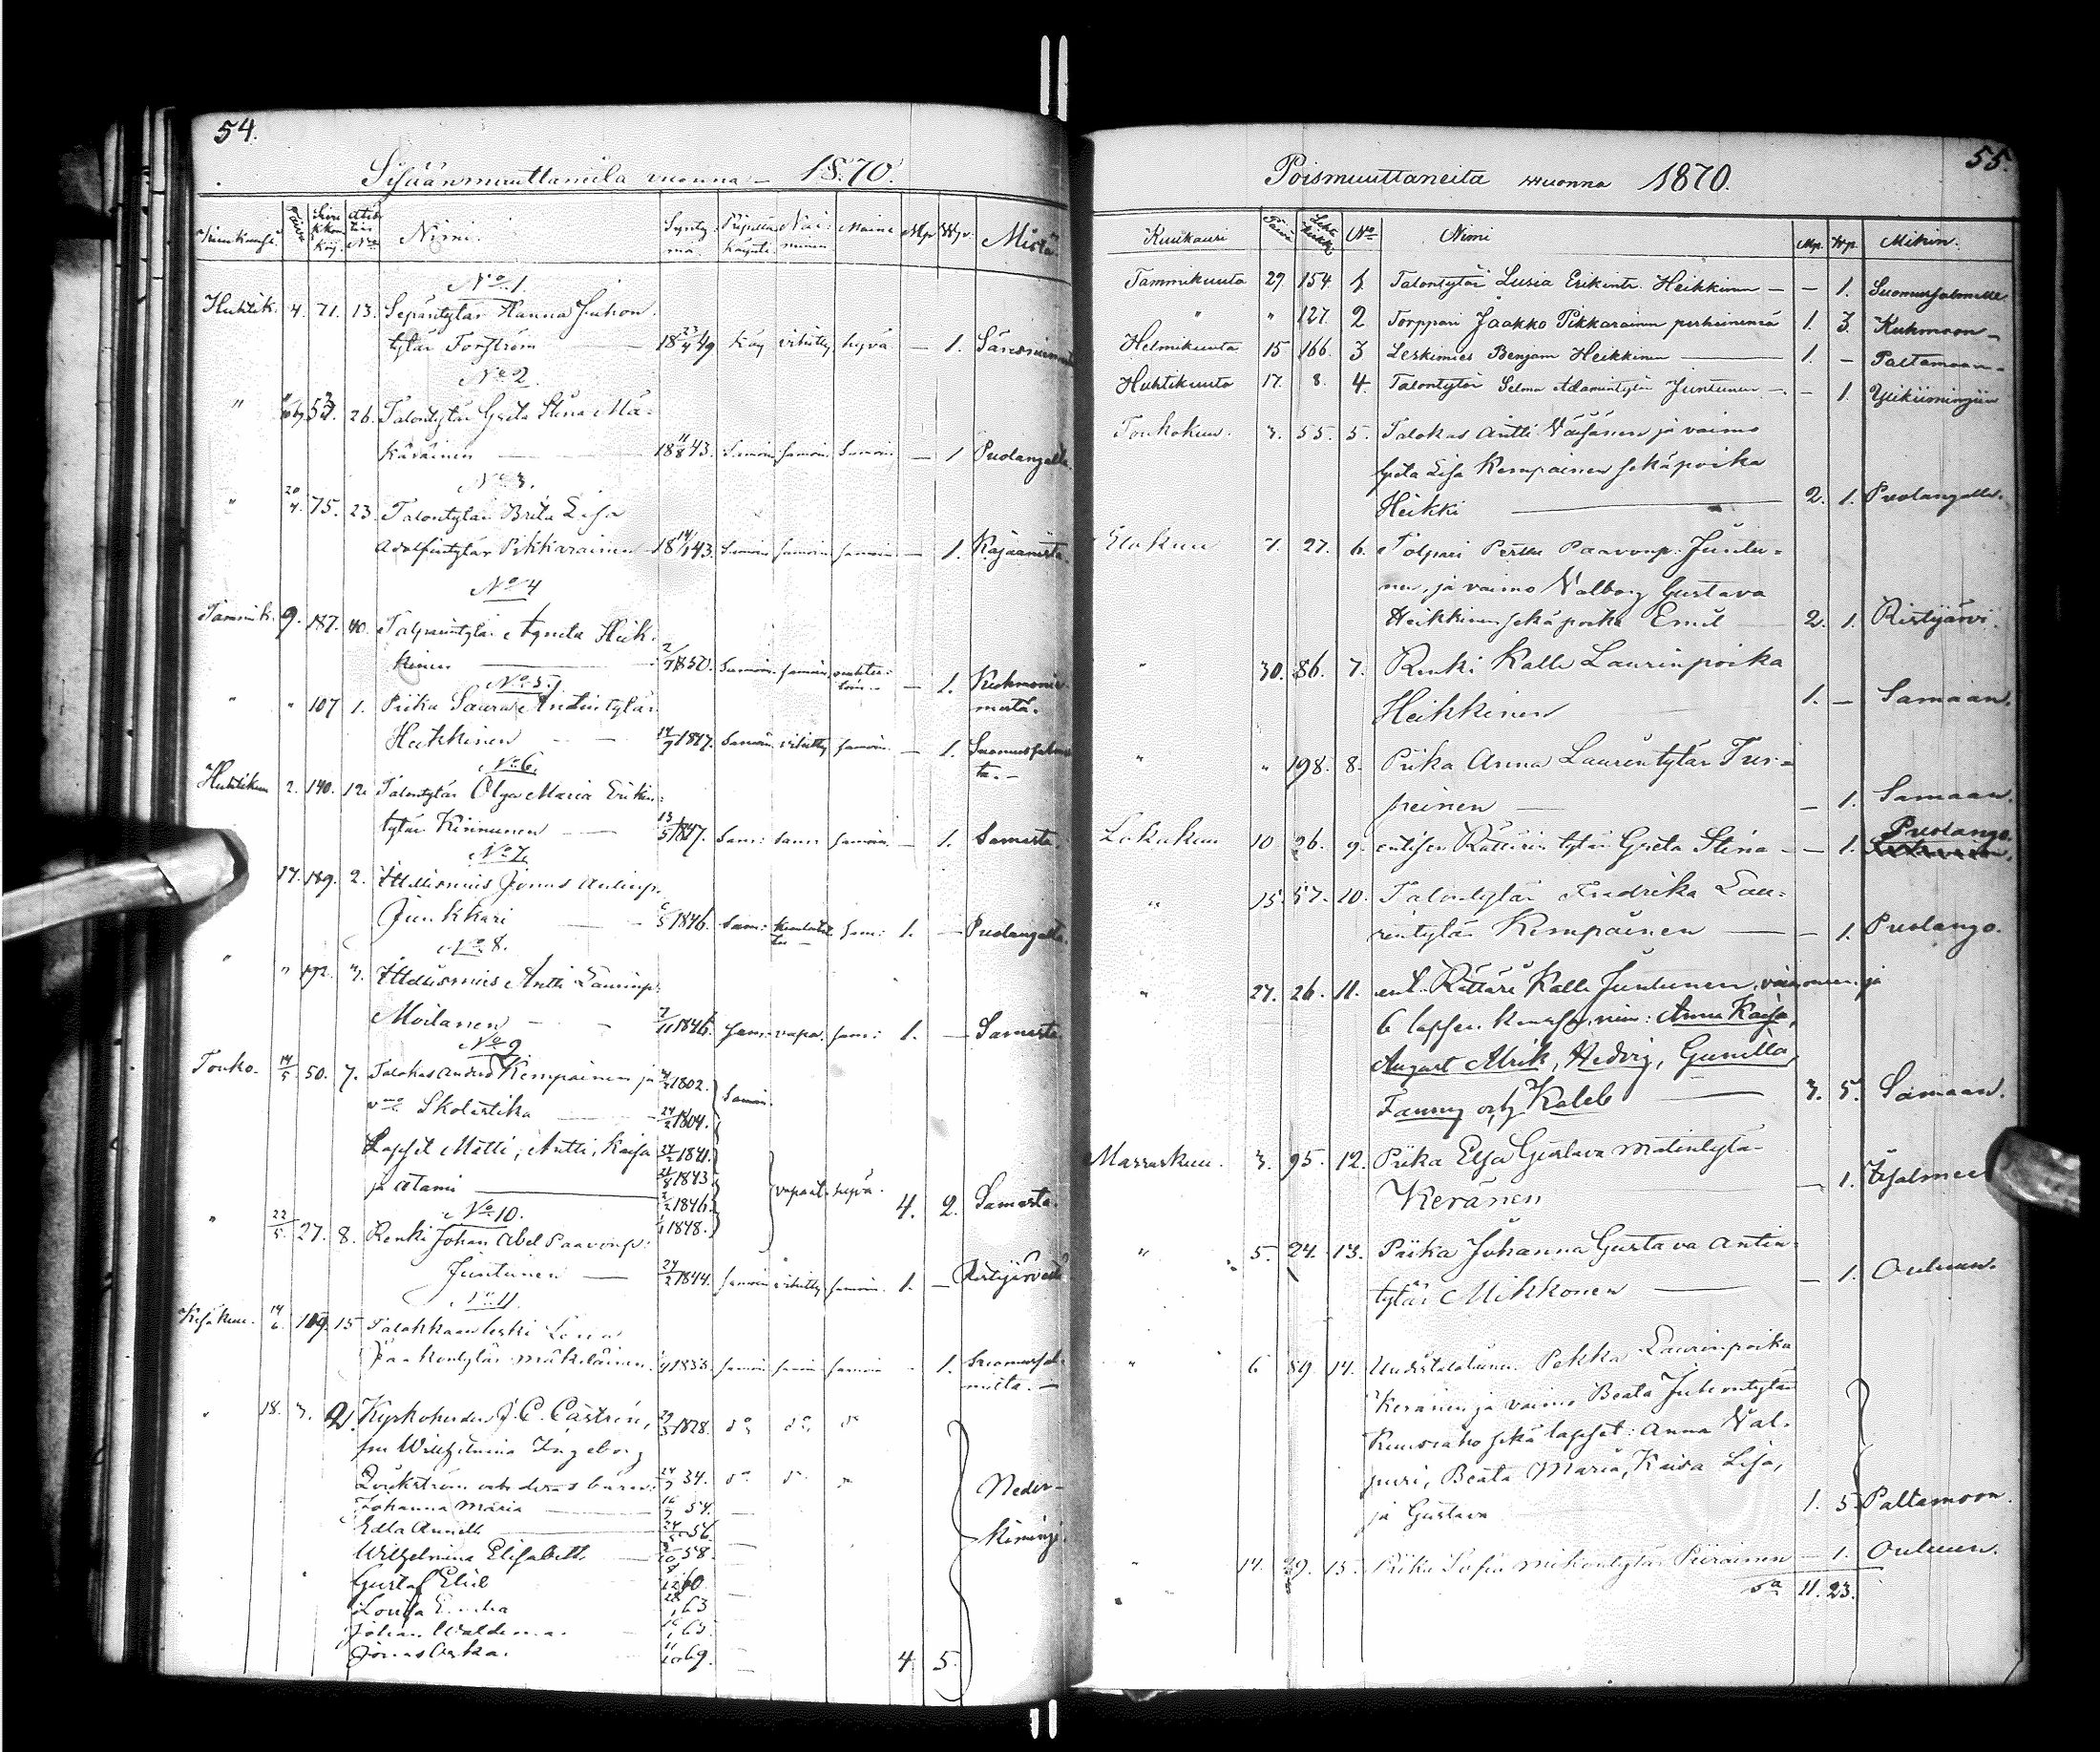 54.
Sisäänmuuttaneita vuonna 1870.
Päivä Nimi. Synty-
mä. Maine Mp Wp. Mistä.
No 1.
Huhtik. 4. 71. 13. Sepäntytär Hanna Juhon
tytär Forström 18 49 Käy vihitty hyvä — 1.
No 2.
" 26. Talontytär Greta Stina Mä-
käräinen 18 43. Samoin samoin Samoin — 1 Puolangalta.
No 3.
" 20/4 75. 23. Talontytär Brita Lisa
Adolfintytär Pikkarainen 18 14/1 43. Samoin samoin samoin — 1. Kajaanista.
No 4
Tammik. 9. 187. 40. Agneta Heik-
kinen 1850. Samoin samoin — 1. Kuhmonie-
mestä.
No 5.
" " 107 1. Piika Antintytär
Heikkinen Samoin vihitty samoin — 1.
ta. -
No 6.
Huhtikuu 2. 140. 12. Talontytär Olga Maria Erikin-
tytär Kinnunen 1847. Sam: sam: samoin — 1. Samasta.
No 7.
17. 189. 2. Jonas Antinp.
Junkkari 1846. Sam: sam: 1. — Puolangalta.
No 8.
" " 192. 3. Antti Laurinp.
Moilanen 1846. sam: vapa. sam: 1. — Samasta.
No 9
Touko. 14/5 50. 7. Talokas Andreas Kempainen ja 1802.
Skolastika 24/2 1804. Samoin.
Lapset Matti, Antti, Kaisa 1841.
ja Atami 1843
1846. vapaat hyvä. 4. 2. Samasta.
No 10. 1848.
" 22/5 27. 8. Renki Johan Abel Paavonp:
Juntunen 24/2 1844. samoin vihitty samoin. 1. — Ristijärveltä
No 11.
Kesäkuu. 14/6 109. 15 Talokkaan leski Lena
Jaakontytär Mäkeläinen. 1833. samoin samoin samoin 1. Suomussal-
melta. -
" 18. 3. Kyrkoherden J. C. Castrén, 1828. do do do
fru Wilhelmina Ingeborg
och deras barn: 34. do do do Neder-
Johanna Maria 54. —
Edla 56. — kiminge.
Wilhelmina Elisabeth 58. —
Gustaf Elis 60.
Lovisa 63
Johan Waldemar 65.
Jonas Oskar. 69. 4. 5.
55.
Poismuuttaneita vuonna 1870.
Kuukausi Päivä No Nimi Mp. Wp. Mihin.
Tammikuuta 29. 154. 1. Talontytär Lusia Erikintr. Heikkinen — — 1. Suomussalmelle
" " 127. 2 Torppari Jaakko Pikkarainen perheinensä 1. 3. Kuhmoon
Helmikuuta 15 166. 3 Leskimies Benjam Heikkinen — 1. — Paltamoon
Huhtikuuta 17. 8. 4. Talontytär Selma Adamintytär Juntunen — — 1. Ylikiiminkiin
Toukokuu. 3. 55. 5. Talokas Antti Väisänen ja vaimo
Greta Lisa Kempainen sekä poika
Heikki 2. 1. Puolangalle.
Elokuu 7. 27. 6. Paavonp. Juntu-
nen, ja vaimo Valborg Gustava
Heikkinen sekä poika Emil 2. 1. Ristijärvi.
" 30. 86. 7. Renki Kalle Laurinpoika
Heikkinen 1. — Samaan.
" " 198. 8. Piika Anna Laurintytär Tur-
peinen — — 1. Samaan.
Lokakuu 10 26. 9. entisen Rättärin tytär Greta Stina — — 1. Puolango.
" 15. 57. 10. Talontytär Fredrika Lau-
rintytär Kempäinen — — 1. Puolango.
" 27. 26. 11. ent. Rättäri Kalle Juntunen, vaimonsa ja
6 lapsen kanssa, nim: Anna Kaisa,
August Ulrik, Hedvig, Gunilla,
Fanny och Kaleb — 3. 5. Samaan.
Marraskuu. 3. 95. 12. Piika Elsa Gustava Matintytä-
Keränen — 1.
" 5. 24. 13. Piika Johanna Gustava Antin-
tytär Mikkonen — — 1. Ouluun.
" 6 89. 14. Pekka Laurinpoika
Keränen ja vaimo Beata Juhontytär
sekä lapset: Anna Val-
puri, Beata Maria, Kaisa Lisa,
ja Gustava 1. 5 Paltamoon.
" 14. 29. 15. Piika Sofia Mikontytär Piirainen — 1. Ouluun.
Sa 11. 23.